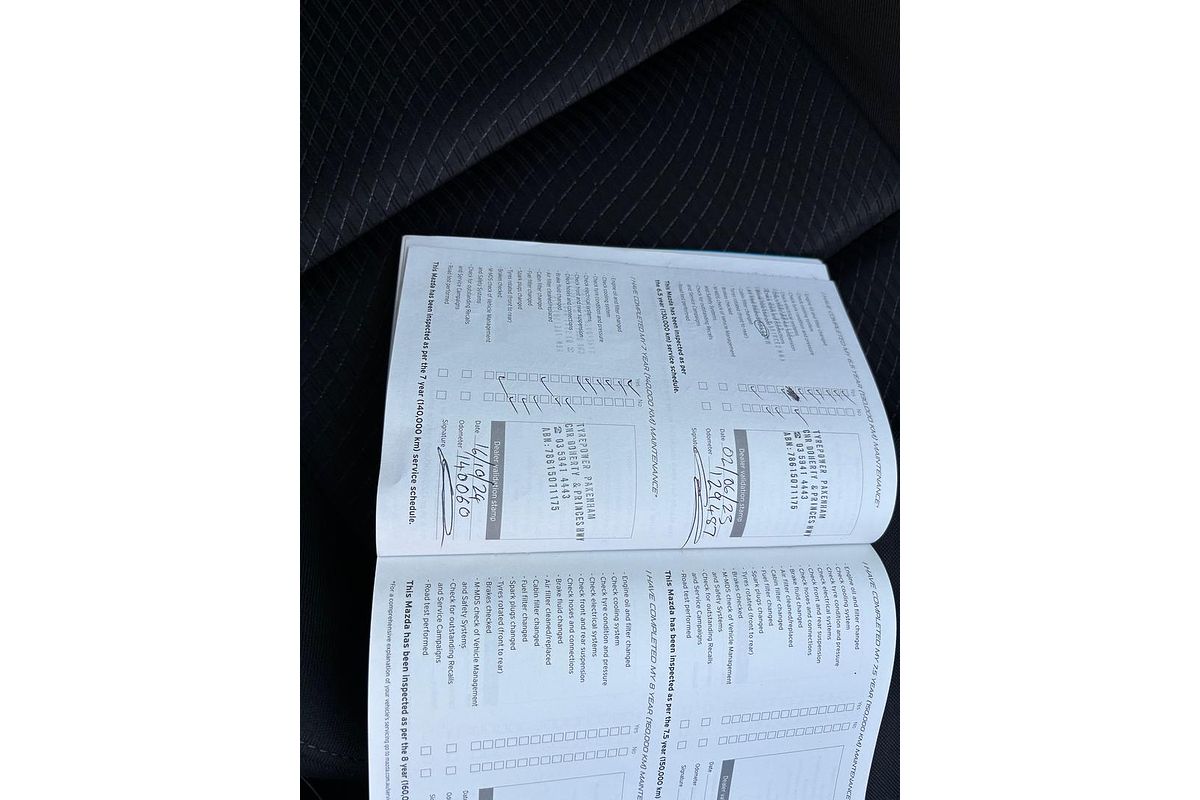 I HAVE COMPLETED MY 6.5 YEAR (130,000 KM) MAINTENANCE*
Yes No
TYREPOWER PAKENHAM
CNR DOHERTY & PRINCES HWY
☎ 03 5941 4443
ABN:78615071175
Dealer validation stamp
Date 02/06/23
Odometer 129487
Signature
This Mazda has been inspected as per
the 6.5 year (130,000 km) service schedule.
I HAVE COMPLETED MY 7 YEAR (140,000 KM) MAINTENANCE*
Yes No
· Engine oil and filter changed
· Check cooling system
· Check tyre condition and pressure
· Check electrical systems
· Check front and rear suspension
· Check hoses and connections
· Brake fluid changed
· Air filter cleaned/replaced
· Cabin filter changed
· Fuel filter changed
· Spark plugs changed
· Tyres rotated (front to rear)
· Brakes checked
· M-MDS check of Vehicle Management
and Safety Systems
· Check for outstanding Recalls
and Service Campaigns
· Road test performed
TYREPOWER PAKENHAM
CNR DOHERTY & PRINCES HWY
☎ 03 5941 4443
ABN:78615071175
Dealer validation stamp
Date 16/10/24
Odometer 140060
Signature
This Mazda has been inspected as per the 7 year (140,000 km) service schedule.
I HAVE COMPLETED MY 7.5 YEAR (150,000 KM) MAINTENANCE*
Yes No
· Engine oil and filter changed
· Check cooling system
· Check tyre condition and pressure
· Check electrical systems
· Check front and rear suspension
· Check hoses and connections
· Brake fluid changed
· Air filter cleaned/replaced
· Cabin filter changed
· Fuel filter changed
· Spark plugs changed
· Tyres rotated (front to rear)
· Brakes checked
· M-MDS check of Vehicle Management
and Safety Systems
· Check for outstanding Recalls
and Service Campaigns
· Road test performed
Dealer va
Date
Odometer
Signature
This Mazda has been inspected as per the 7.5 year (150,000 km)
I HAVE COMPLETED MY 8 YEAR (160,000 KM) MAINTE
Yes No
· Engine oil and filter changed
· Check cooling system
· Check tyre condition and pressure
· Check electrical systems
· Check front and rear suspension
· Check hoses and connections
· Brake fluid changed
· Air filter cleaned/replaced
· Cabin filter changed
· Fuel filter changed
· Spark plugs changed
· Tyres rotated (front to rear)
· Brakes checked
· M-MDS check of Vehicle Management
and Safety Systems
· Check for outstanding Recalls
and Service Campaigns
· Road test performed
This Mazda has been inspected as per the 8 year (160,0
*For a comprehensive explanation of your vehicle's servicing go to mazda.com.au/servi